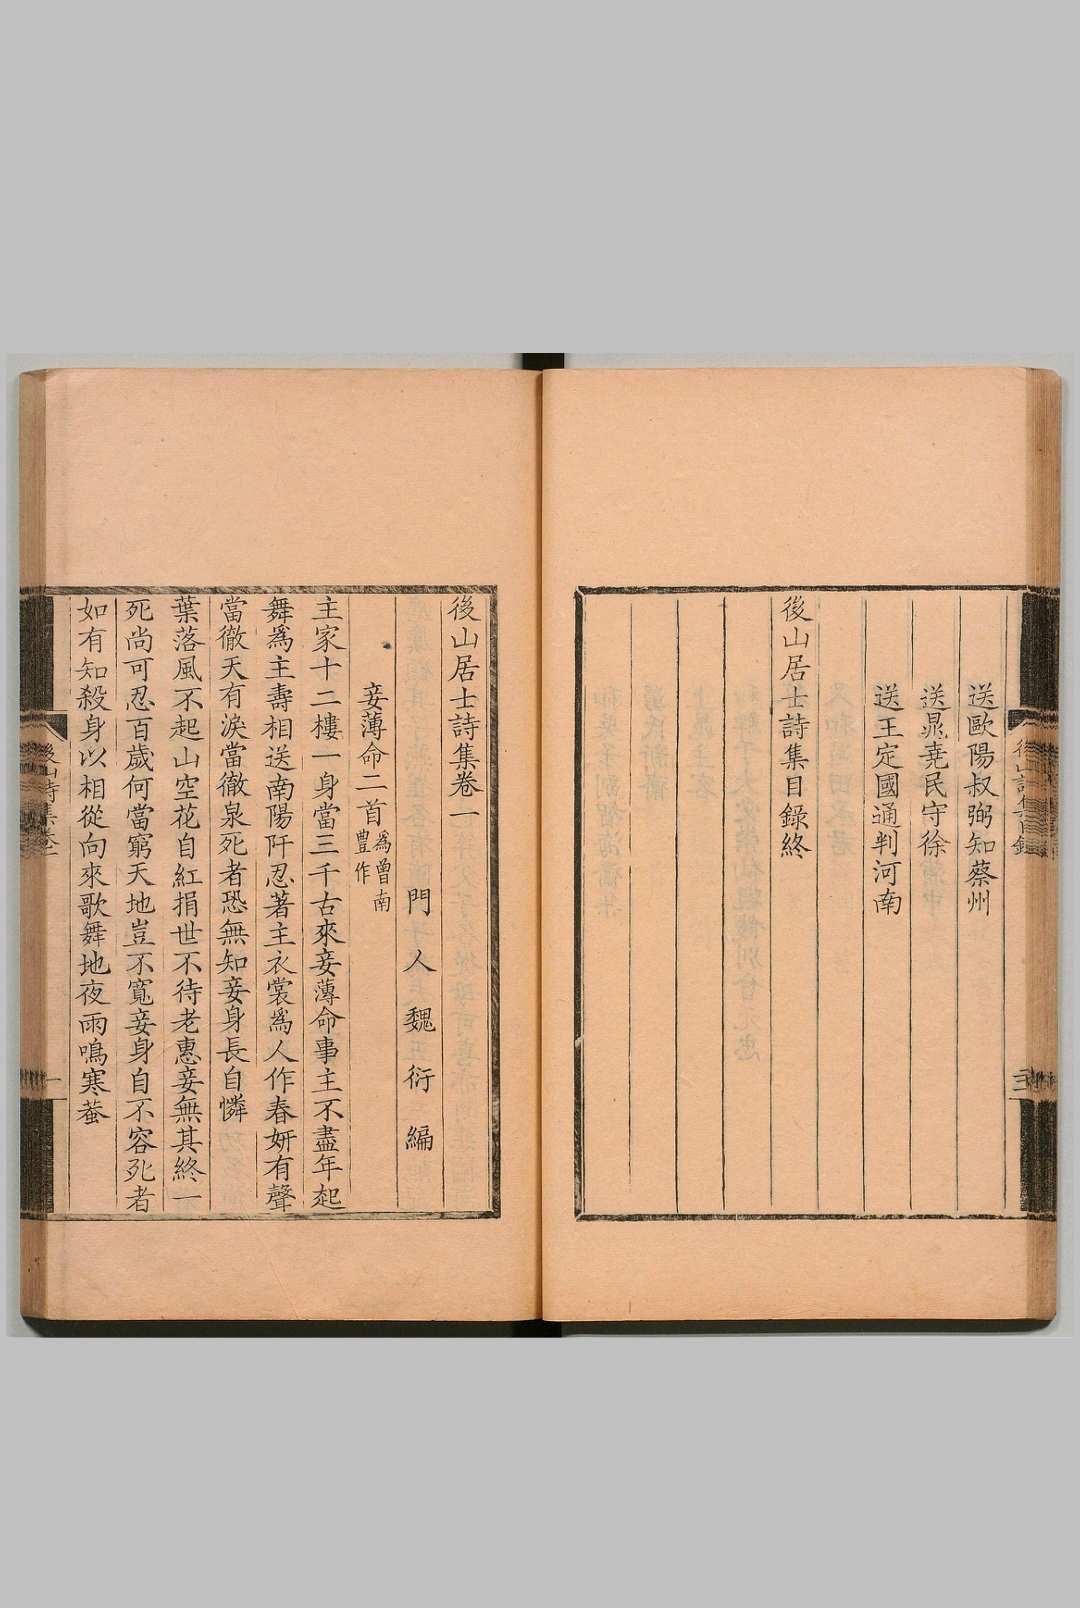 送歐陽叔弼知蔡州
送晁堯民守徐
送王定國通判河南
後山居士詩集目錄終
後山居士詩集卷一
門人魏衍編
妾薄命二首
為曾南
豐作
主家十二樓一身當三千古來妾薄命事主不盡年起
舞為主壽相送南陽阡忍著主衣裳為人作春妍有聲
當徹天有淚當徹泉死者恐無知妾身長自憐
葉落風不起山空花自紅捐世不待老惠妾無其終一
死尚可忍百歲何當窮天地豈不寬妾身自不容死者
如有知殺身以相從向來歌舞地夜雨鳴寒蛩
後山詩集卷一
一